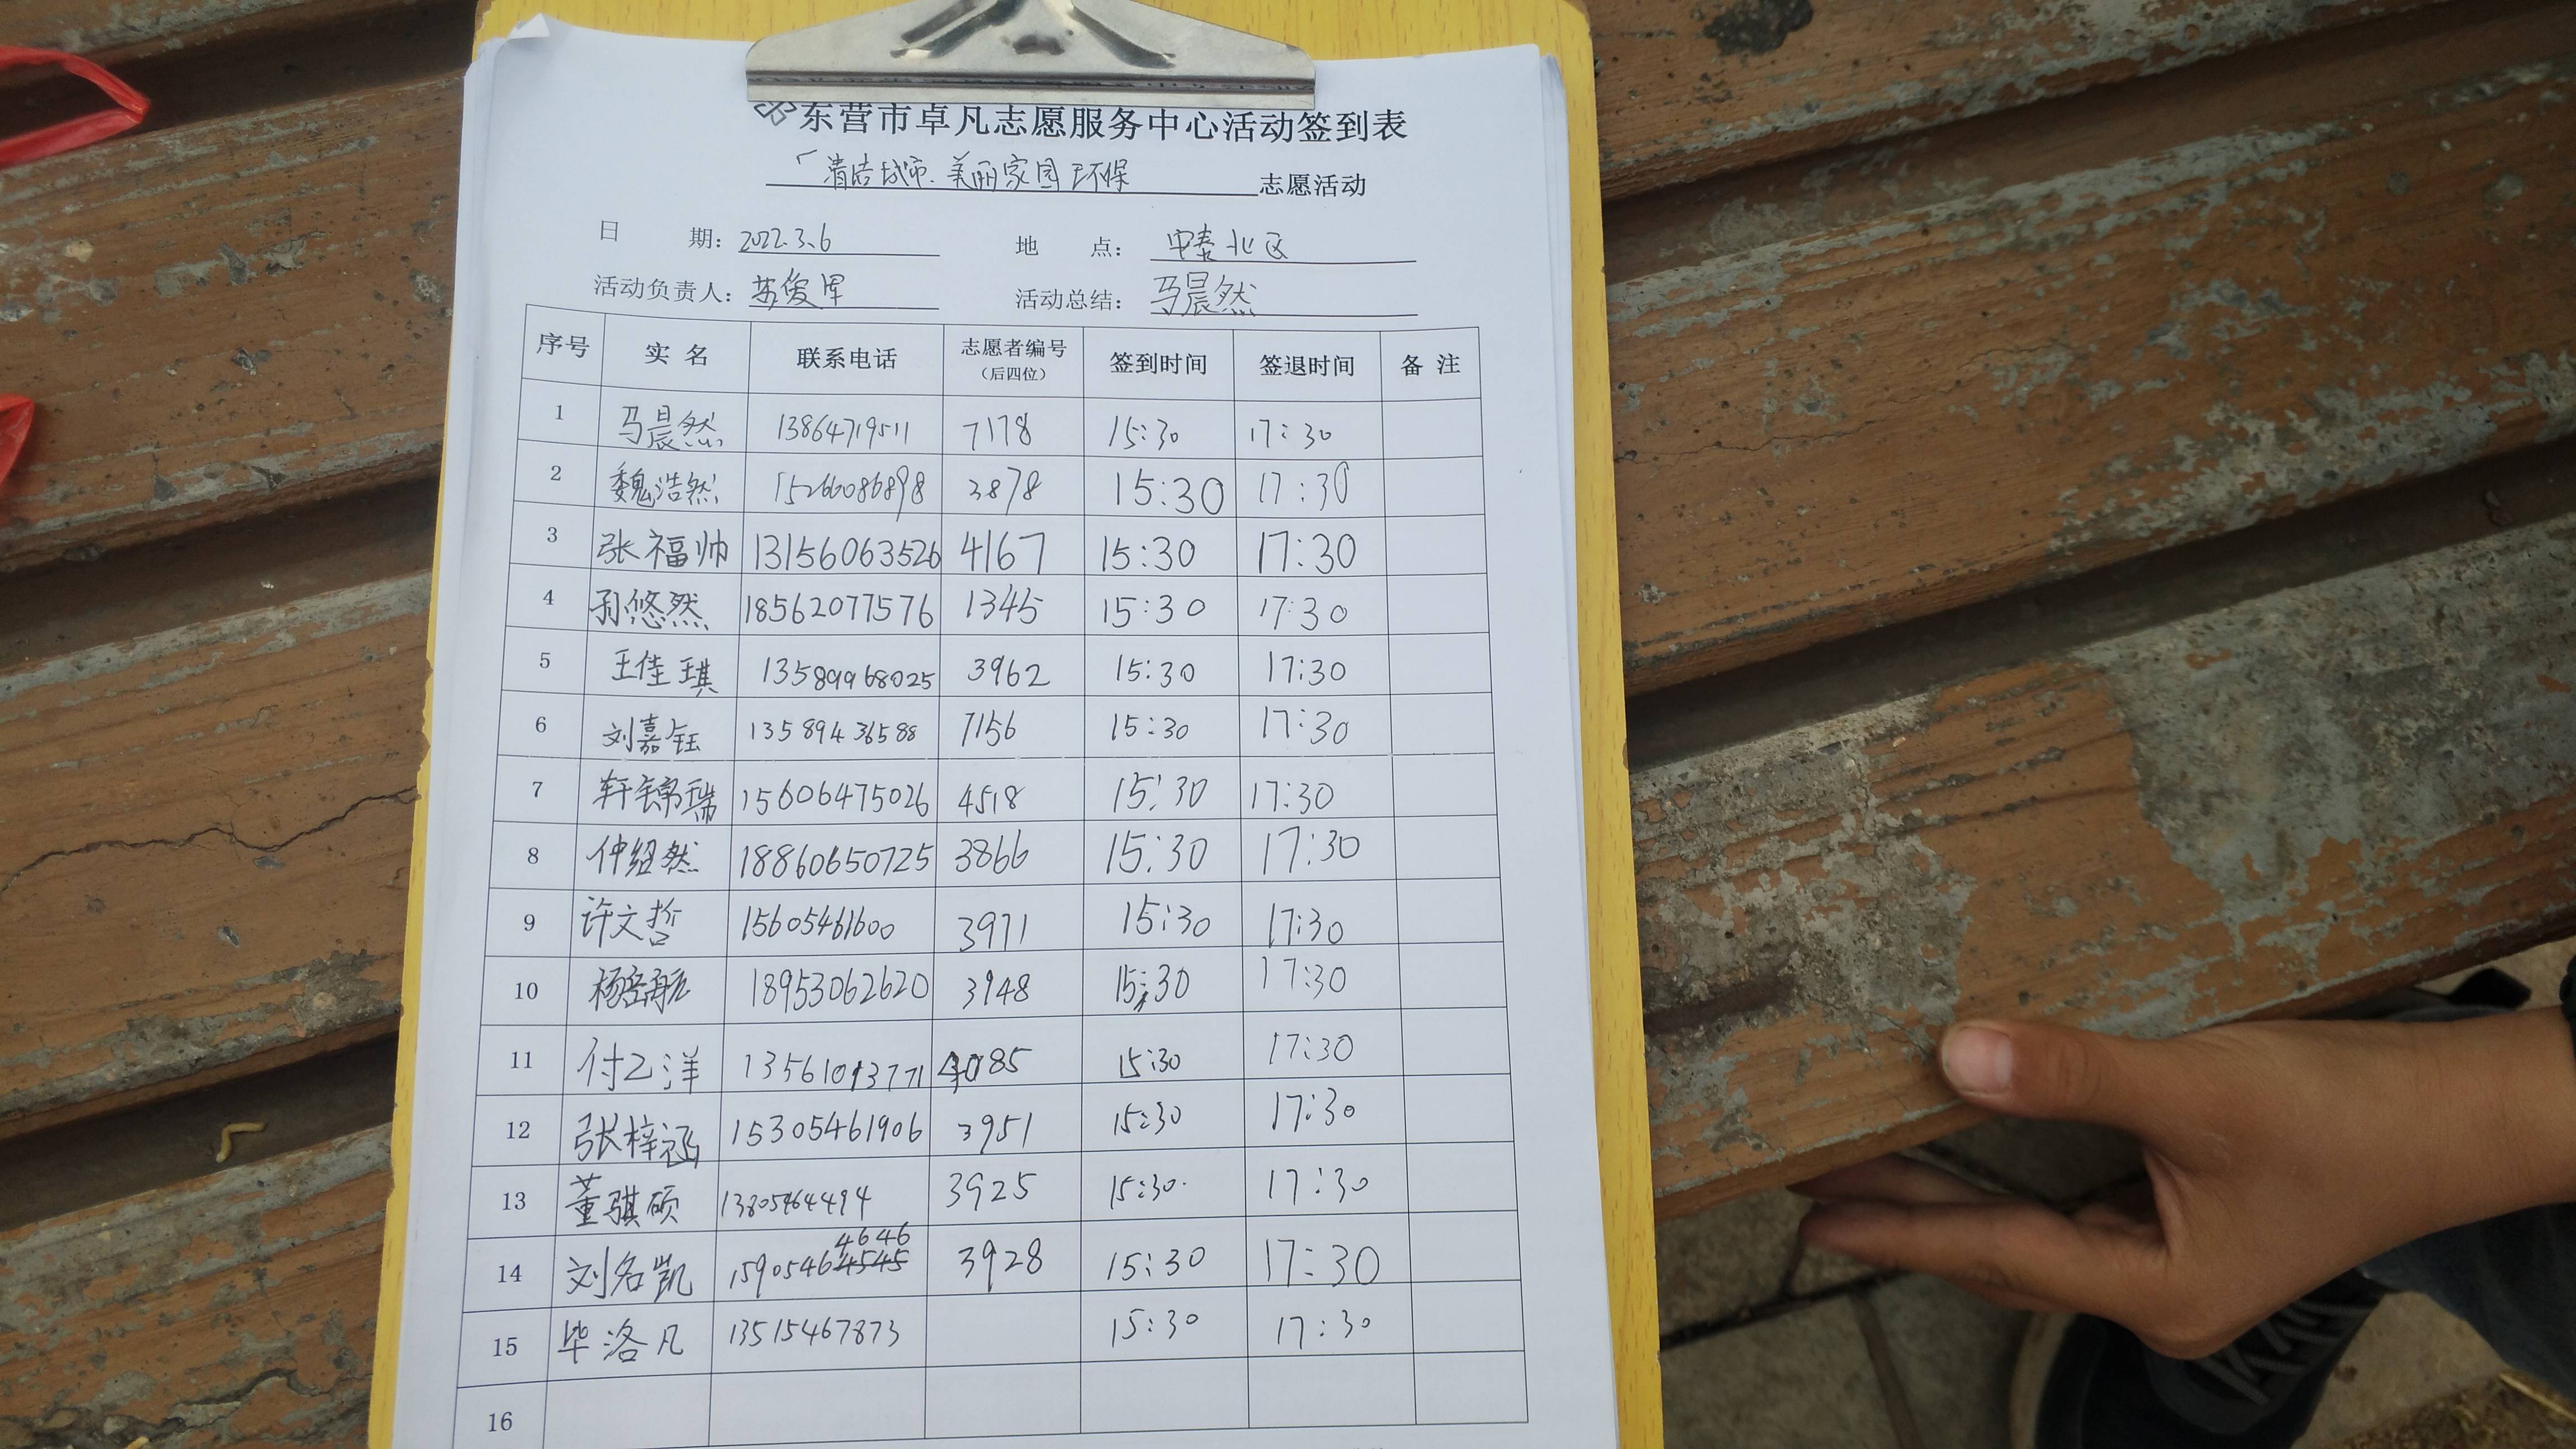 东营市卓凡志愿服务中心活动签到表
「清洁城市、美丽家园环保 志愿活动
日 期: 2022.3.6 地 点: 中泰北区
活动负责人: 俊 活动总结: 马晨然
序号 实 名 联系电话 志愿者编号 (后四位) 签到时间 签退时间 备 注
1 马晨然 13864719511 7178 15:30 17:30
2 魏浩然 15266086898 3878 15:30 17:30
3 张福帅 13156063526 4167 15:30 17:30
4 孙悠然 18562077576 1345 15:30 17:30
5 王佳琪 13589968025 3962 15:30 17:30
6 刘嘉钰 13589436588 7156 15:30 17:30
7 轩锦瑞 15606475026 4518 15:30 17:30
8 仲绍然 18860650725 3866 15:30 17:30
9 许文哲 15605461600 3971 15:30 17:30
10 杨 航 18953062620 3948 15:30 17:30
11 付乙洋 13561013771 4085 15:30 17:30
12 张梓涵 15305461906 3951 15:30 17:30
13 董骐硕 13805464494 3925 15:30 17:30
4646
14 刘名凯 15905464545 3928 15:30 17:30
15 毕洛凡 13515467873 15:30 17:30
16